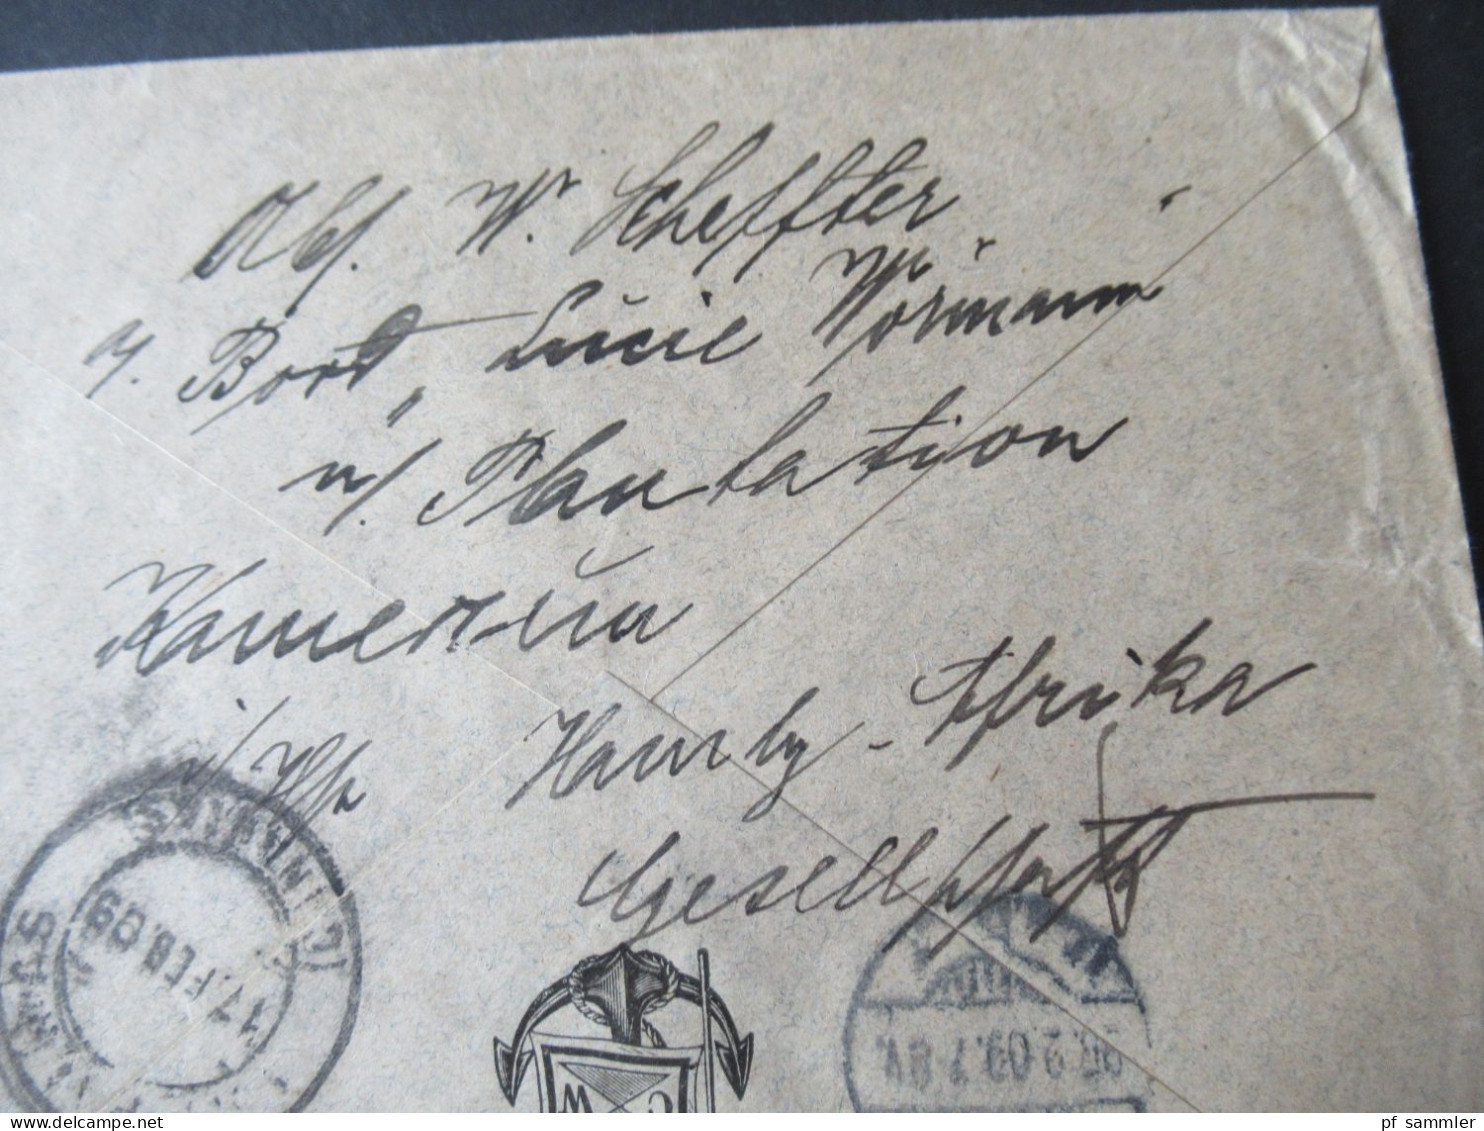 Abs. W. Scheffter
a/. Bord „Lucie Wörmann
n/. Plantation
Kamerun
Hamb.-Afrika
Gesellschaft
17. FEB. 09
.2.09.7-8V.
C W
pf_sammler